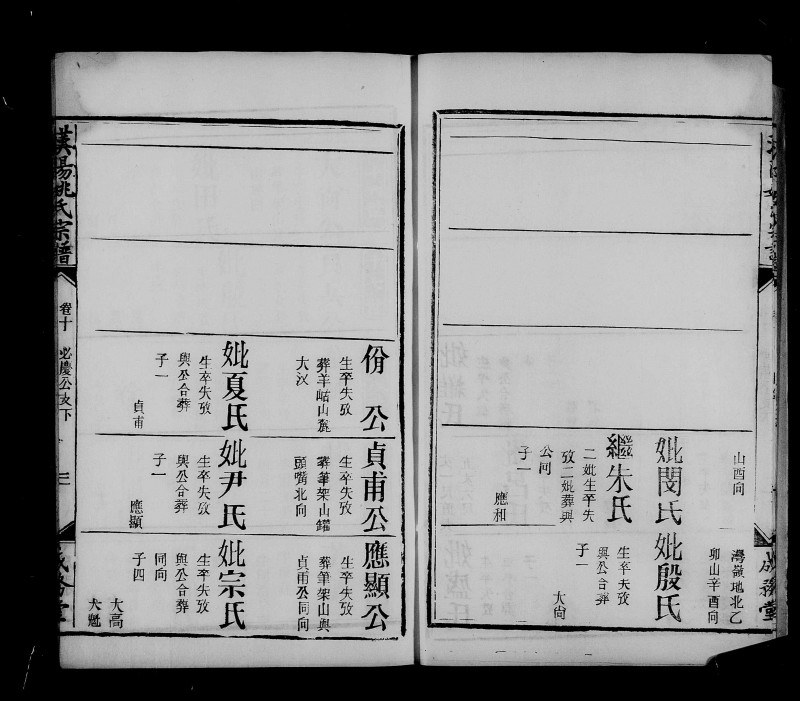 山酉向
妣閔氏
繼朱氏
二妣生卒失
攷二妣葬與
公同
子一
應相
灣嶺地北乙
卯山辛酉向
妣殷氏
生卒失攷
與公合葬
子一
大尙
成務堂
份公
生卒失攷
葬羊岵山麓
大汊
妣夏氏
生卒失攷
與公合葬
子一
貞甫
貞甫公
生卒失攷
葬筆架山鑵
頭嘴北向
妣尹氏
生卒失攷
與公合葬
子一
應顯
應顯公
生卒失攷
葬筆架山與
貞甫公同向
妣宗氏
生卒失攷
與公合葬
同向
子四
大高
大魁
漢陽姚氏宗譜
卷十
必慶公支下
三
成務堂